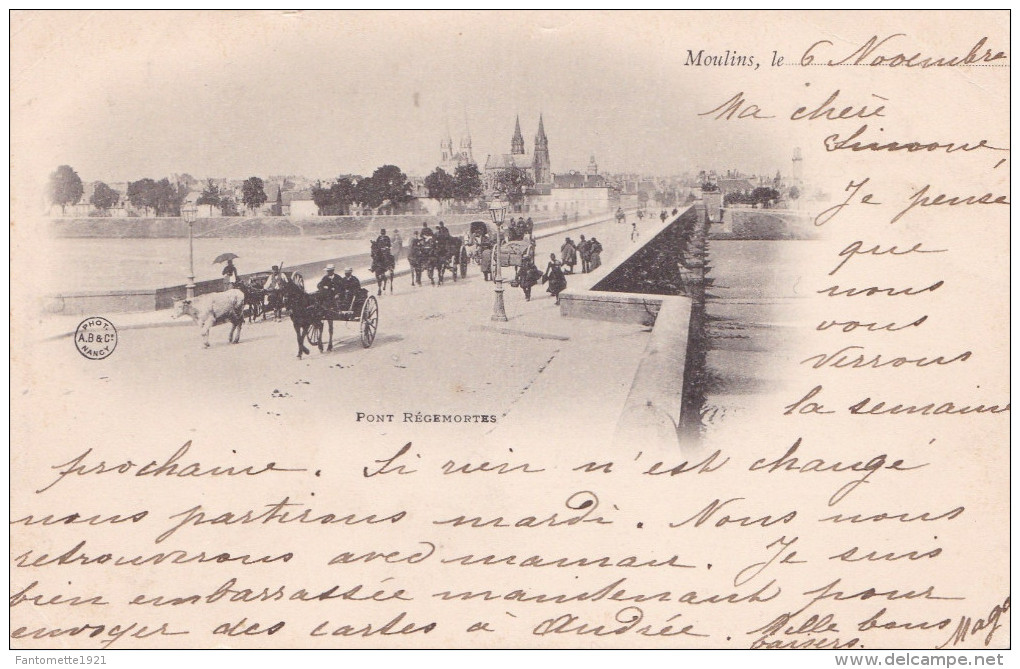 Moulins, le 6 Novembre
Ma chère
Simone,
Je pense
que
nous
vous
verrons
la semaine
PHOT.
A.B & Cie
NANCY
PONT RÉGEMORTES
prochaine. Si rien n'est changé
nous partirons mardi. Nous nous
retrouverons avec maman. Je suis
bien embarrassée maintenant pour
envoyer des cartes à Andrée. Mille bons
baisers. Mag
Fantomette1921
www.delcampe.net